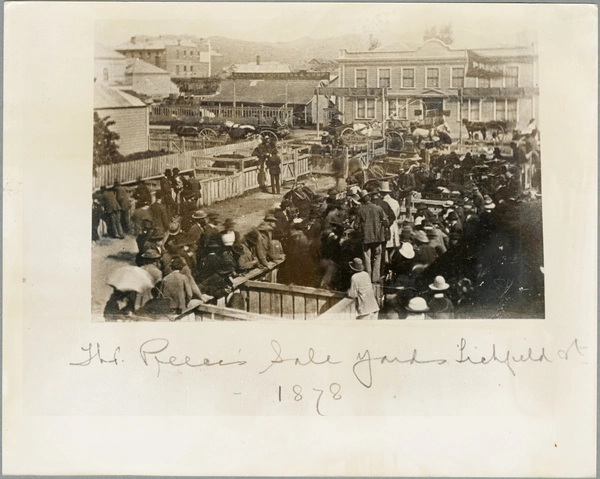 Reece's Sale Yards Lichfield St.
- 1878